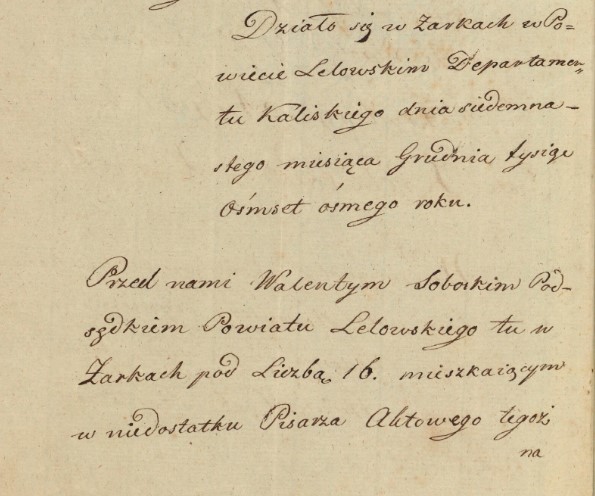 Działo się w Żarkach w Po=
wiecie Lelowskim Departamen„
tu Kaliskiego dnia siedemna-
stego miesiąca Grudnia tysiąc
Ośmset ósmego roku.
Przed nami Walentym Soboskim Pod-
sędkiem Powiatu Lelowskiego tu w
Żarkach pod Liczbą 16. mieszkaiącym
w niedostatku Pisarza Aktowego tegoż
na